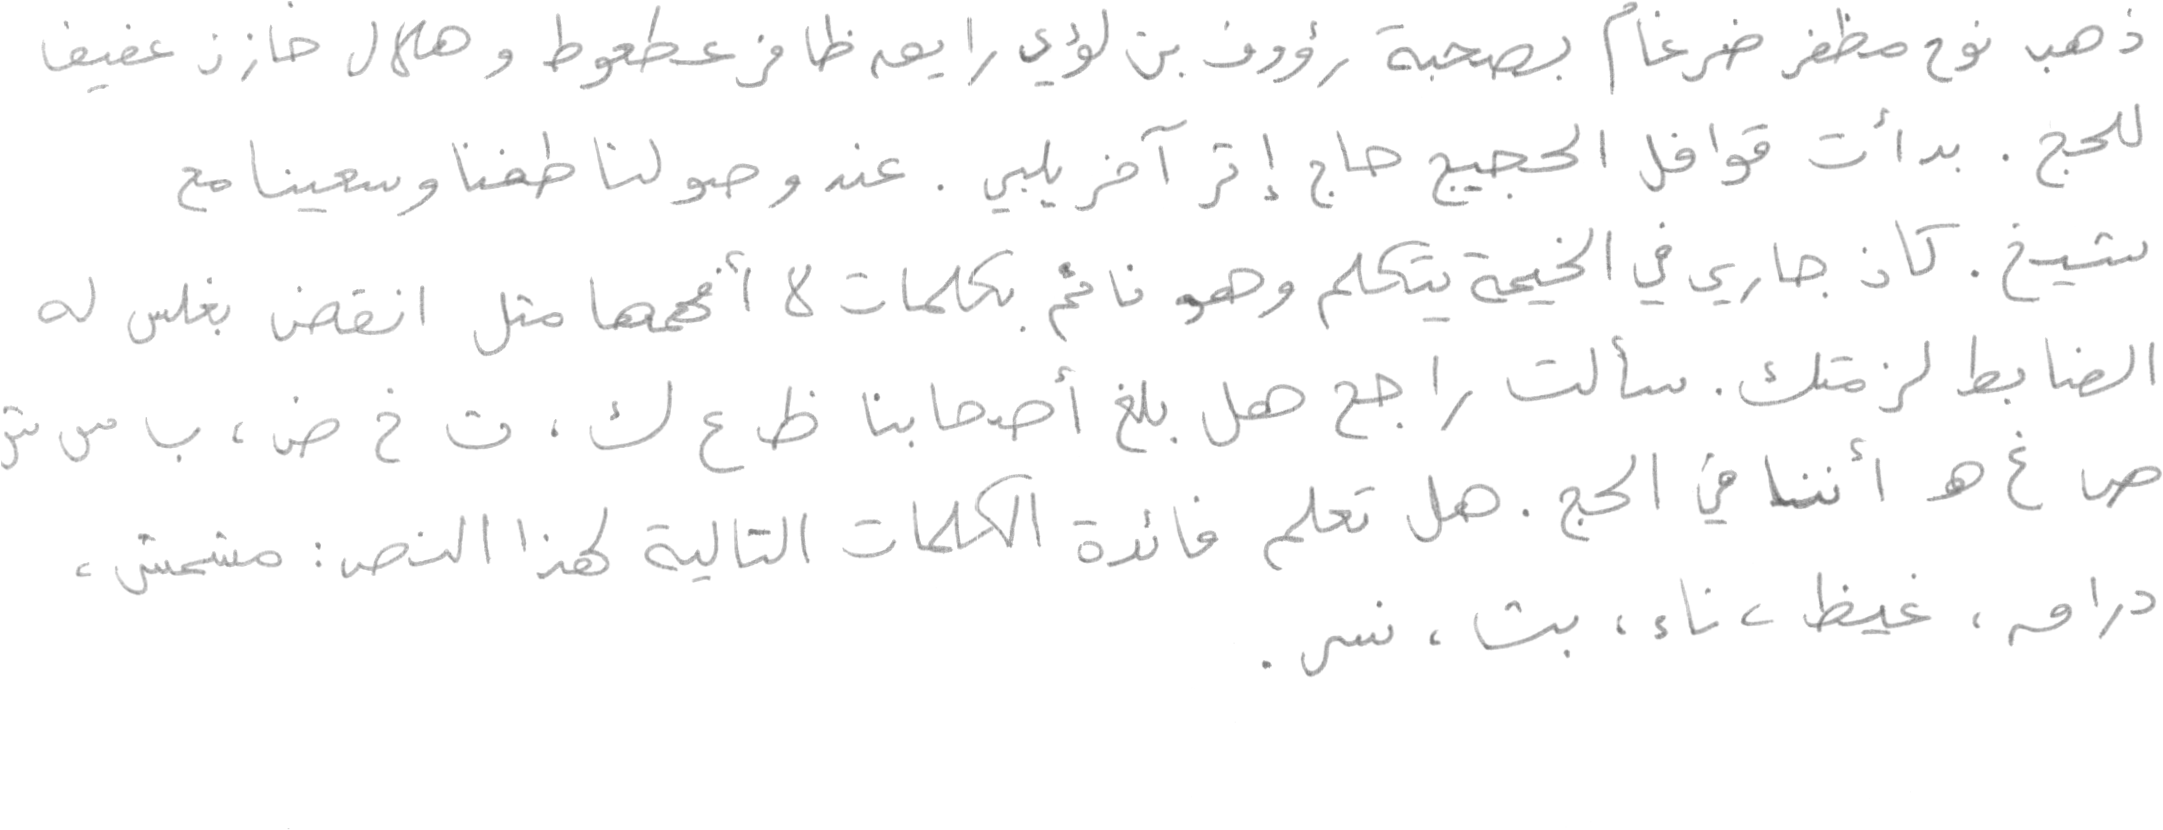 ذهب نوح مظفر ضرغام بصحبة رؤوف بن لؤي رايق ظافر عطعوط و هلال خازن عفيف
للحج . بدأت قوافل الحجيج حاج إثر آخر يلبي . عند وصولنا طفنا وسعينا مع
شيخ . كان جاري في الخيمة يتكلم وهو نائم بكلمات لا أفهمها مثل انقض بغلس له
الضابط لزمتك . سألت راجح هل بلغ أصحابنا ظ ع ك ، ت خ ض ، ب س ش
ص غ ه أننا في الحج . هل تعلم فائدة الكلمات التالية لهذا النص : مشمش ،
دراق ، غيظ ، ناء ، بث ، نسر .